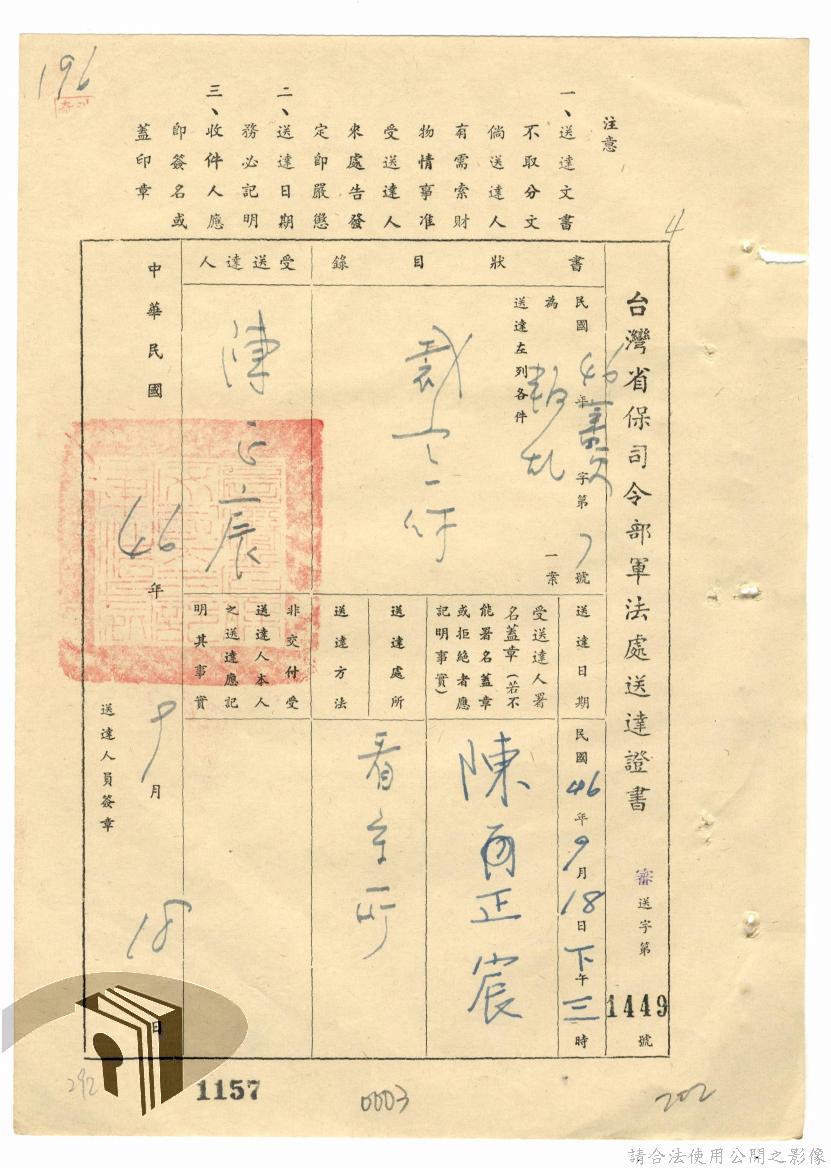 196
注意
一、送達文書
不取分文
倘送達人
有需索財
物情事准
受送達人
來處告發
定即嚴懲
二、送達日期
務必記明
三、收件人應
即簽名或
蓋印章
4
台灣省保司令部軍法處送達證書
審送字第1449號
書狀目錄
民國46年 字第 號
為叛乱一案
送達左列各件
裁定一件
受送達人
陳正宸
送達日期
民國46年9月18日下午三時
受送達人署
名蓋章(若不
能署名蓋章
或拒絕者應
記明事實)
陳 正宸
送達處所
看守所
送達方法
非交付受
送達人本人
之送達應記
明其事實
中華民國46年9月18日
送達人員簽章
292
1157
0003
202
請合法使用公開之影像